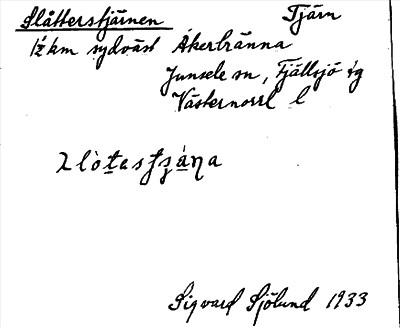 Slåtterstjärnen Tjärn
1½ km sydväst Åkerbränna
Junsele sn, Fjällsjö tg
Västernorrl l
Sigvard Sjölund 1933